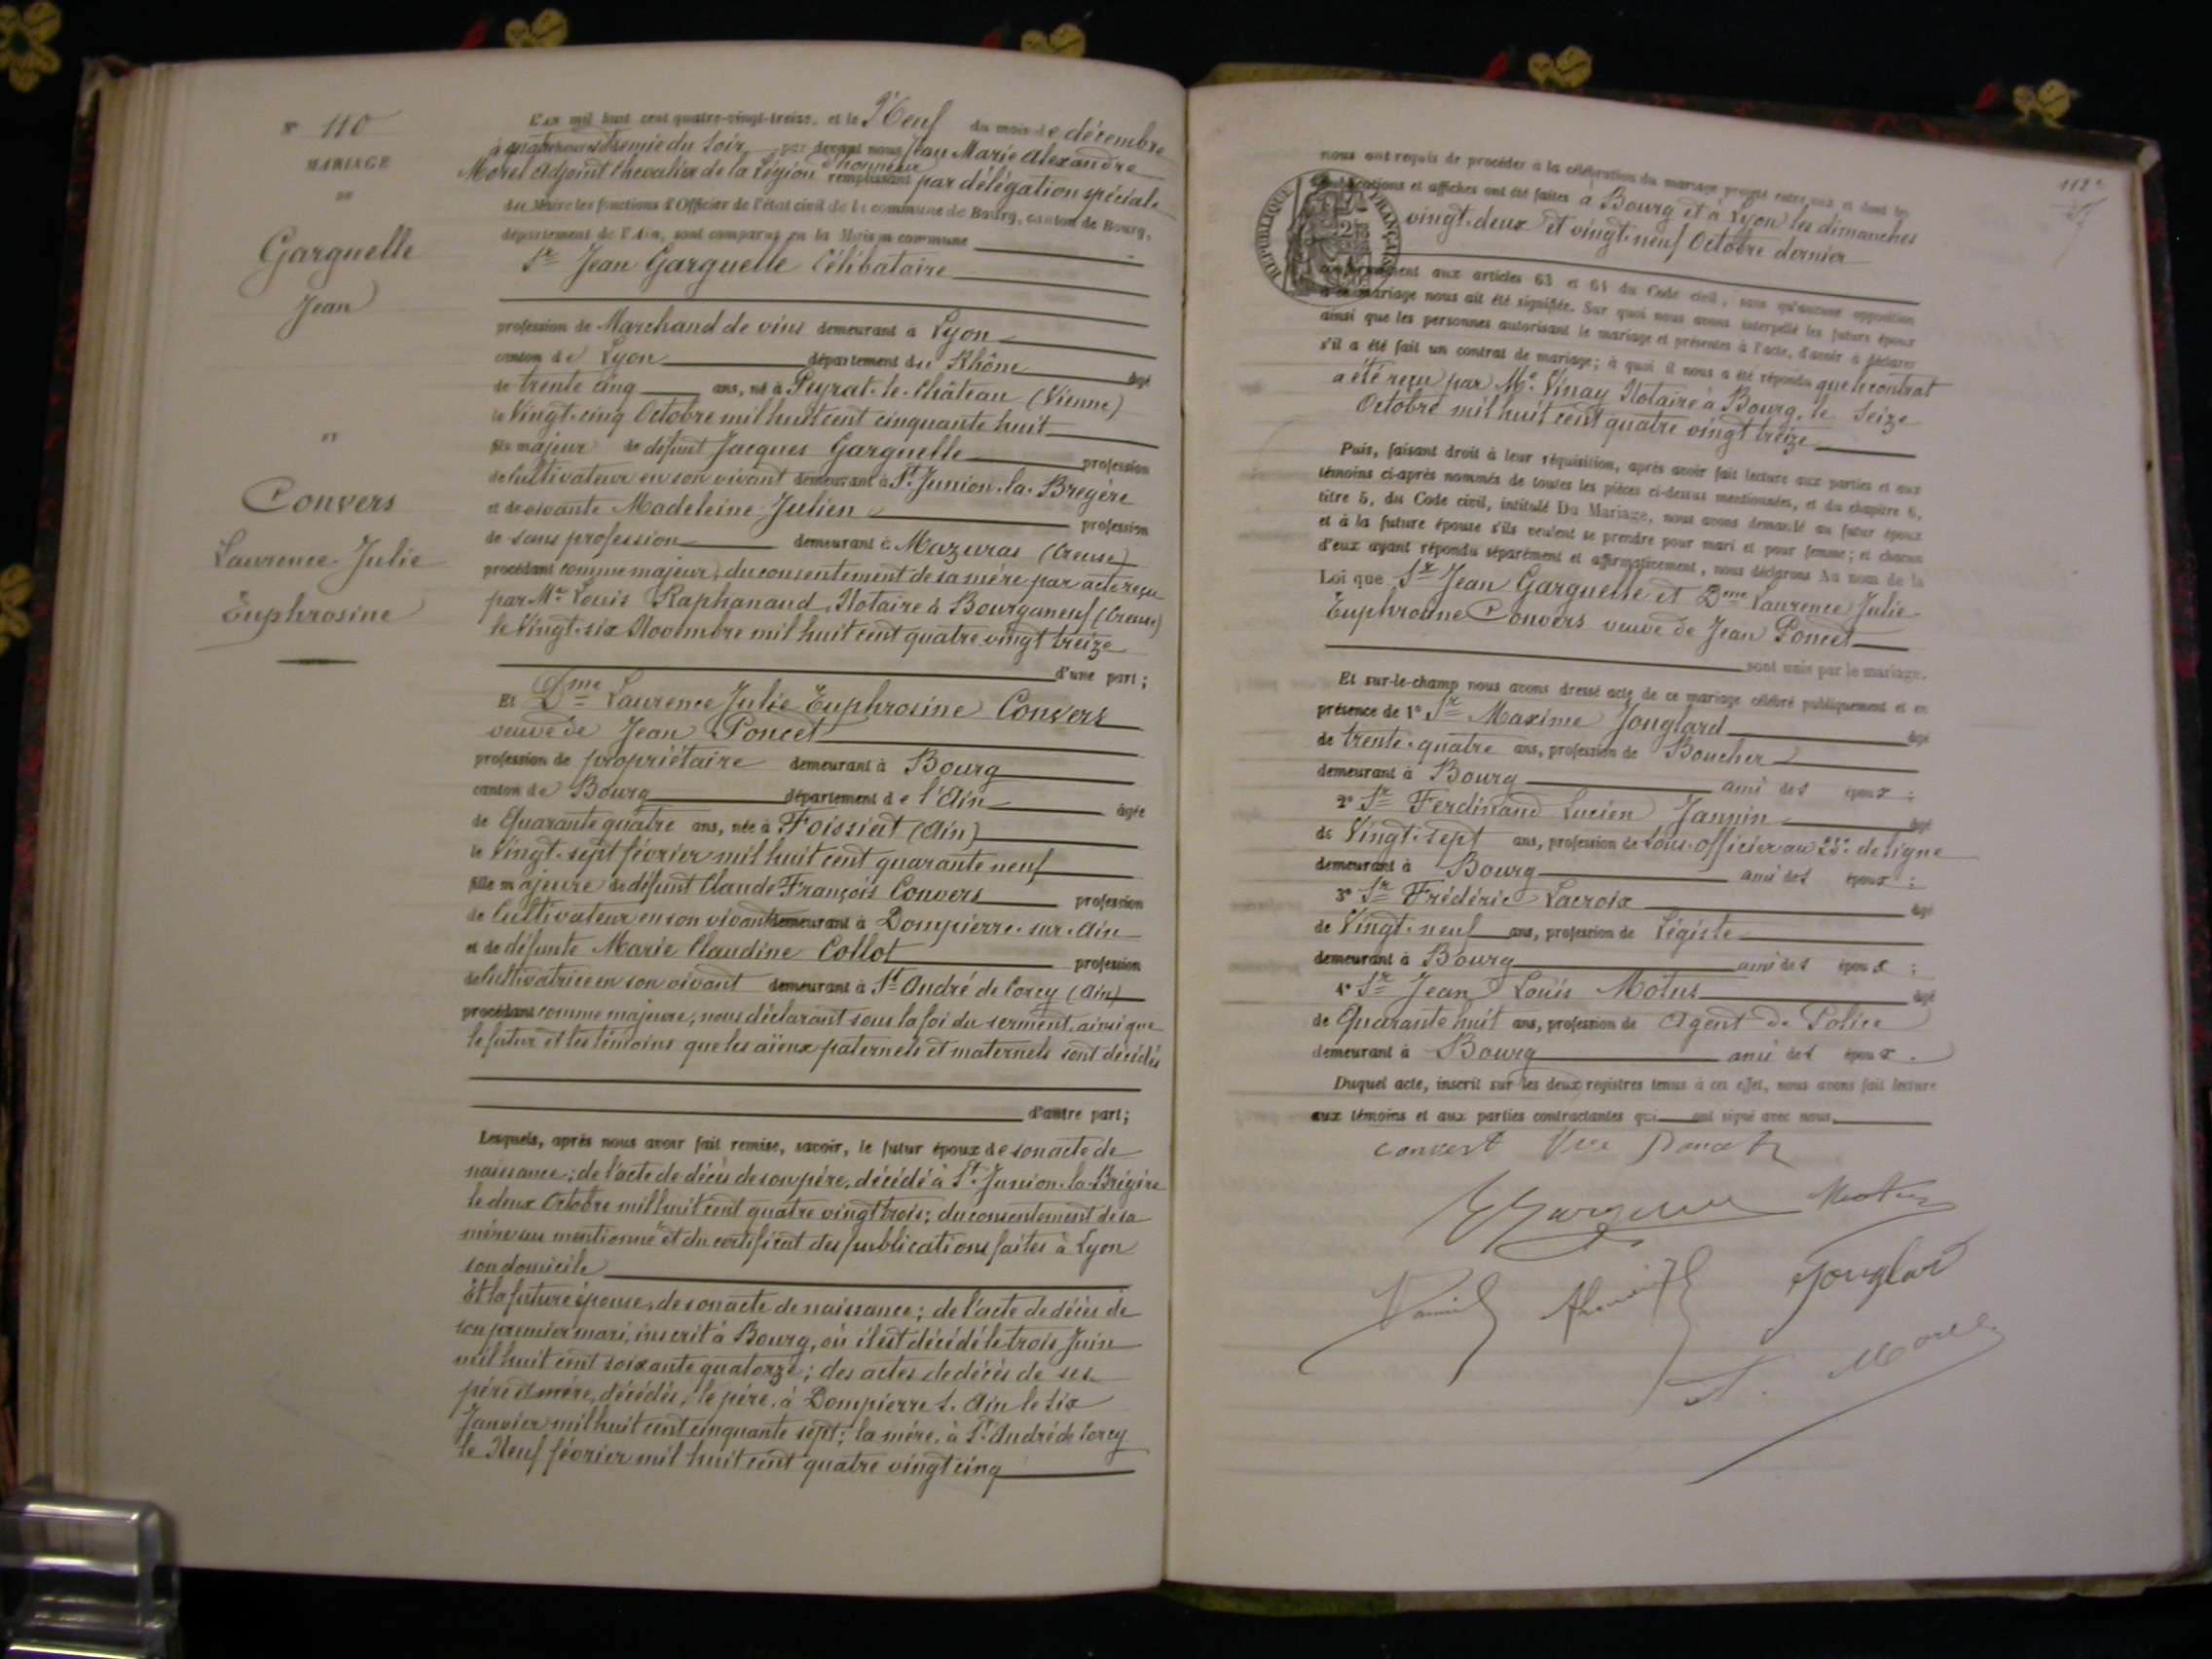 N° 110
MARIAGE
DE
Garguelle
Jean
ET
Convers
Laurence Julie
Euphrosine
L'an mil huit cent quatre-vingt-treize, et le Neuf du mois de décembre
à quatre heures et demie du Soir, par devant nous Jean Marie Alexandre
Morel Adjoint Chevalier de la Légion d'honneur remplissant par délégation spéciale
du Maire les fonctions d'Officier de l'état civil de la commune de Bourg, canton de Bourg,
département de l'Ain, sont comparus en la Maison commune
Sr Jean Garguelle Célibataire
profession de Marchand de vins demeurant à Lyon
canton de Lyon département du Rhône âgé
de trente cinq ans, né à Peyrat-le-Château (Vienne)
le Vingt-cinq Octobre mil huit cent cinquante huit
fils majeur de défunt Jacques Garguelle profession
de Cultivateur en son vivant demeurant à St Junien-la-Bregère
et de vivante Madeleine Julien profession
de sans profession demeurant à Mazuras (Creuse)
procédant comme majeur, du consentement de sa mère par acte reçu
par Me Louis Raphanaud, Notaire à Bourganeuf (Creuse)
le Vingt-six Novembre mil huit cent quatre vingt treize
d'une part;
Et Dme Laurence Julie Euphrosine Convers
veuve de Jean Poncet
profession de propriétaire demeurant à Bourg
canton de Bourg département de l'Ain âgée
de Quarante quatre ans, née à Foissiat (Ain)
le Vingt-sept février mil huit cent quarante neuf
fille majeure de défunt Claude François Convers profession
de Cultivateur en son vivant demeurant à Dompierre-sur-Ain
et de défunte Marie Claudine Collot profession
de Cultivatrice en son vivant demeurant à St André de Corcy (Ain)
procédant comme majeure, nous déclarant sous la foi du serment, ainsi que
le futur et les témoins que les aïeux paternels et maternels sont décédés
d'autre part;
Lesquels, après nous avoir fait remise, savoir, le futur époux de son acte de
naissance; de l'acte de décès de son père, décédé à St Junien-la-Brégère
le deux Octobre mil huit cent quatre vingt trois; du consentement de sa
mère sus mentionné et du certificat des publications faites à Lyon
son domicile
Et la future épouse, de son acte de naissance; de l'acte de décès de
son premier mari, inscrit à Bourg, où il est décédé le trois Juin
mil huit cent soixante quatorze; des actes de décès de ses
père et mère, décédés, le père, à Dompierre s. Ain le six
Janvier mil huit cent cinquante sept; la mère, à St André de Corcy
le Neuf février mil huit cent quatre vingt cinq
112e
RÉPUBLIQUE FRANÇAISE
nous ont requis de procéder à la célébration du mariage projeté entre eux et dont les
publications et affiches ont été faites à Bourg et à Lyon les dimanches
vingt-deux et vingt-neuf Octobre dernier
conformément aux articles 63 et 64 du Code civil, sans qu'aucune opposition
à ce mariage nous ait été signifiée. Sur quoi nous avons interpellé les futurs époux
ainsi que les personnes autorisant le mariage et présentes à l'acte, d'avoir à déclarer
s'il a été fait un contrat de mariage; à quoi il nous a été répondu que le contrat
a été reçu par Me Vinay Notaire à Bourg, le Seize
Octobre mil huit cent quatre vingt treize
Puis, faisant droit à leur réquisition, après avoir fait lecture aux parties et aux
témoins ci-après nommés de toutes les pièces ci-dessus mentionnées, et du chapitre 6,
titre 5, du Code civil, intitulé Du Mariage, nous avons demandé au futur époux
et à la future épouse s'ils veulent se prendre pour mari et pour femme; et chacun
d'eux ayant répondu séparément et affirmativement, nous déclarons Au nom de la
Loi que Sr Jean Garguelle et Dme Laurence Julie
Euphrosine Convers veuve de Jean Poncet
sont unis par le mariage.
Et sur-le-champ nous avons dressé acte de ce mariage célébré publiquement et en
présence de 1° Sr Maxime Jouglard âgé
de trente-quatre ans, profession de Boucher
demeurant à Bourg ami des époux;
2° Sr Ferdinand Lucien Jannin âgé
de Vingt-sept ans, profession de Sous-officier au 23e de ligne
demeurant à Bourg ami des époux;
3° Sr Frédéric Lacroix âgé
de Vingt-neuf ans, profession de Légiste
demeurant à Bourg ami des époux;
4° Sr Jean Louis Motus âgé
de Quarante huit ans, profession de Agent de Police
demeurant à Bourg ami des époux.
Duquel acte, inscrit sur les deux registres tenus à cet effet, nous avons fait lecture
aux témoins et aux parties contractantes qui ont signé avec nous.
convert Vve
Motus
Jouglard
A. Morel